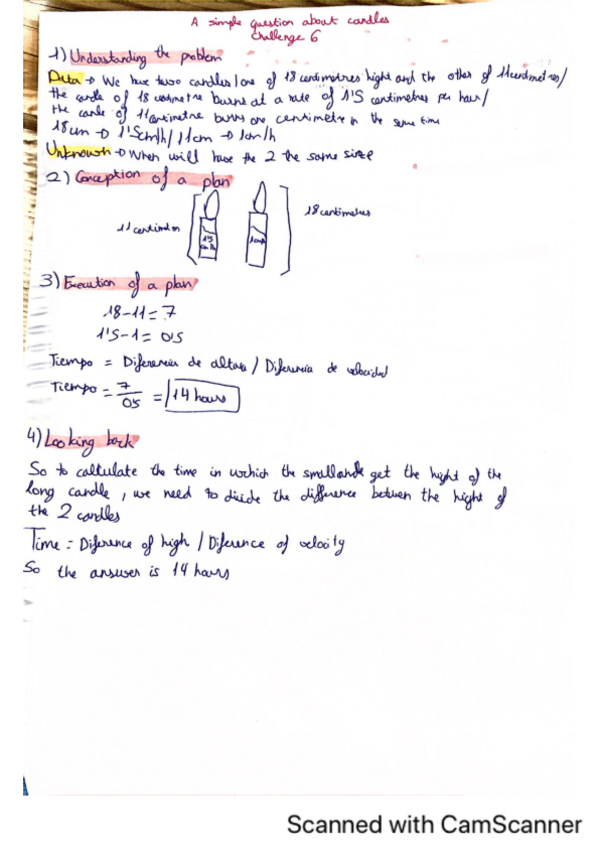 A simple question about candles
Challenge 6
1) Understanding the problem
Data → We have two candles / one of 18 centimetres hight and the other of 11 centimetres /
the candle of 18 centimetre burns at a rate of 1'5 centimetres per hour /
the candle of 11 centimetre burns one centimetre in the same time
18cm → 1'5cm/h / 11cm → 1cm/h
Unknown → When will have the 2 the same size
2) Conception of a plan
18 centimetres
11 centimetres
1'5 cm/h
1cm/h
3) Execution of a plan
18-11=7
1'5-1= 0'5
Tiempo = Diferencia de altura / Diferencia de velocidad
Tiempo = 7/0'5 = 14 hours
4) Looking back
So to caltulate the time in which the get the hight of the
long candle, we need to divide the difference between the hight of
the 2 candles
Time = Diference of high / Diference of velocity
So the answer is 14 hours
Scanned with CamScanner